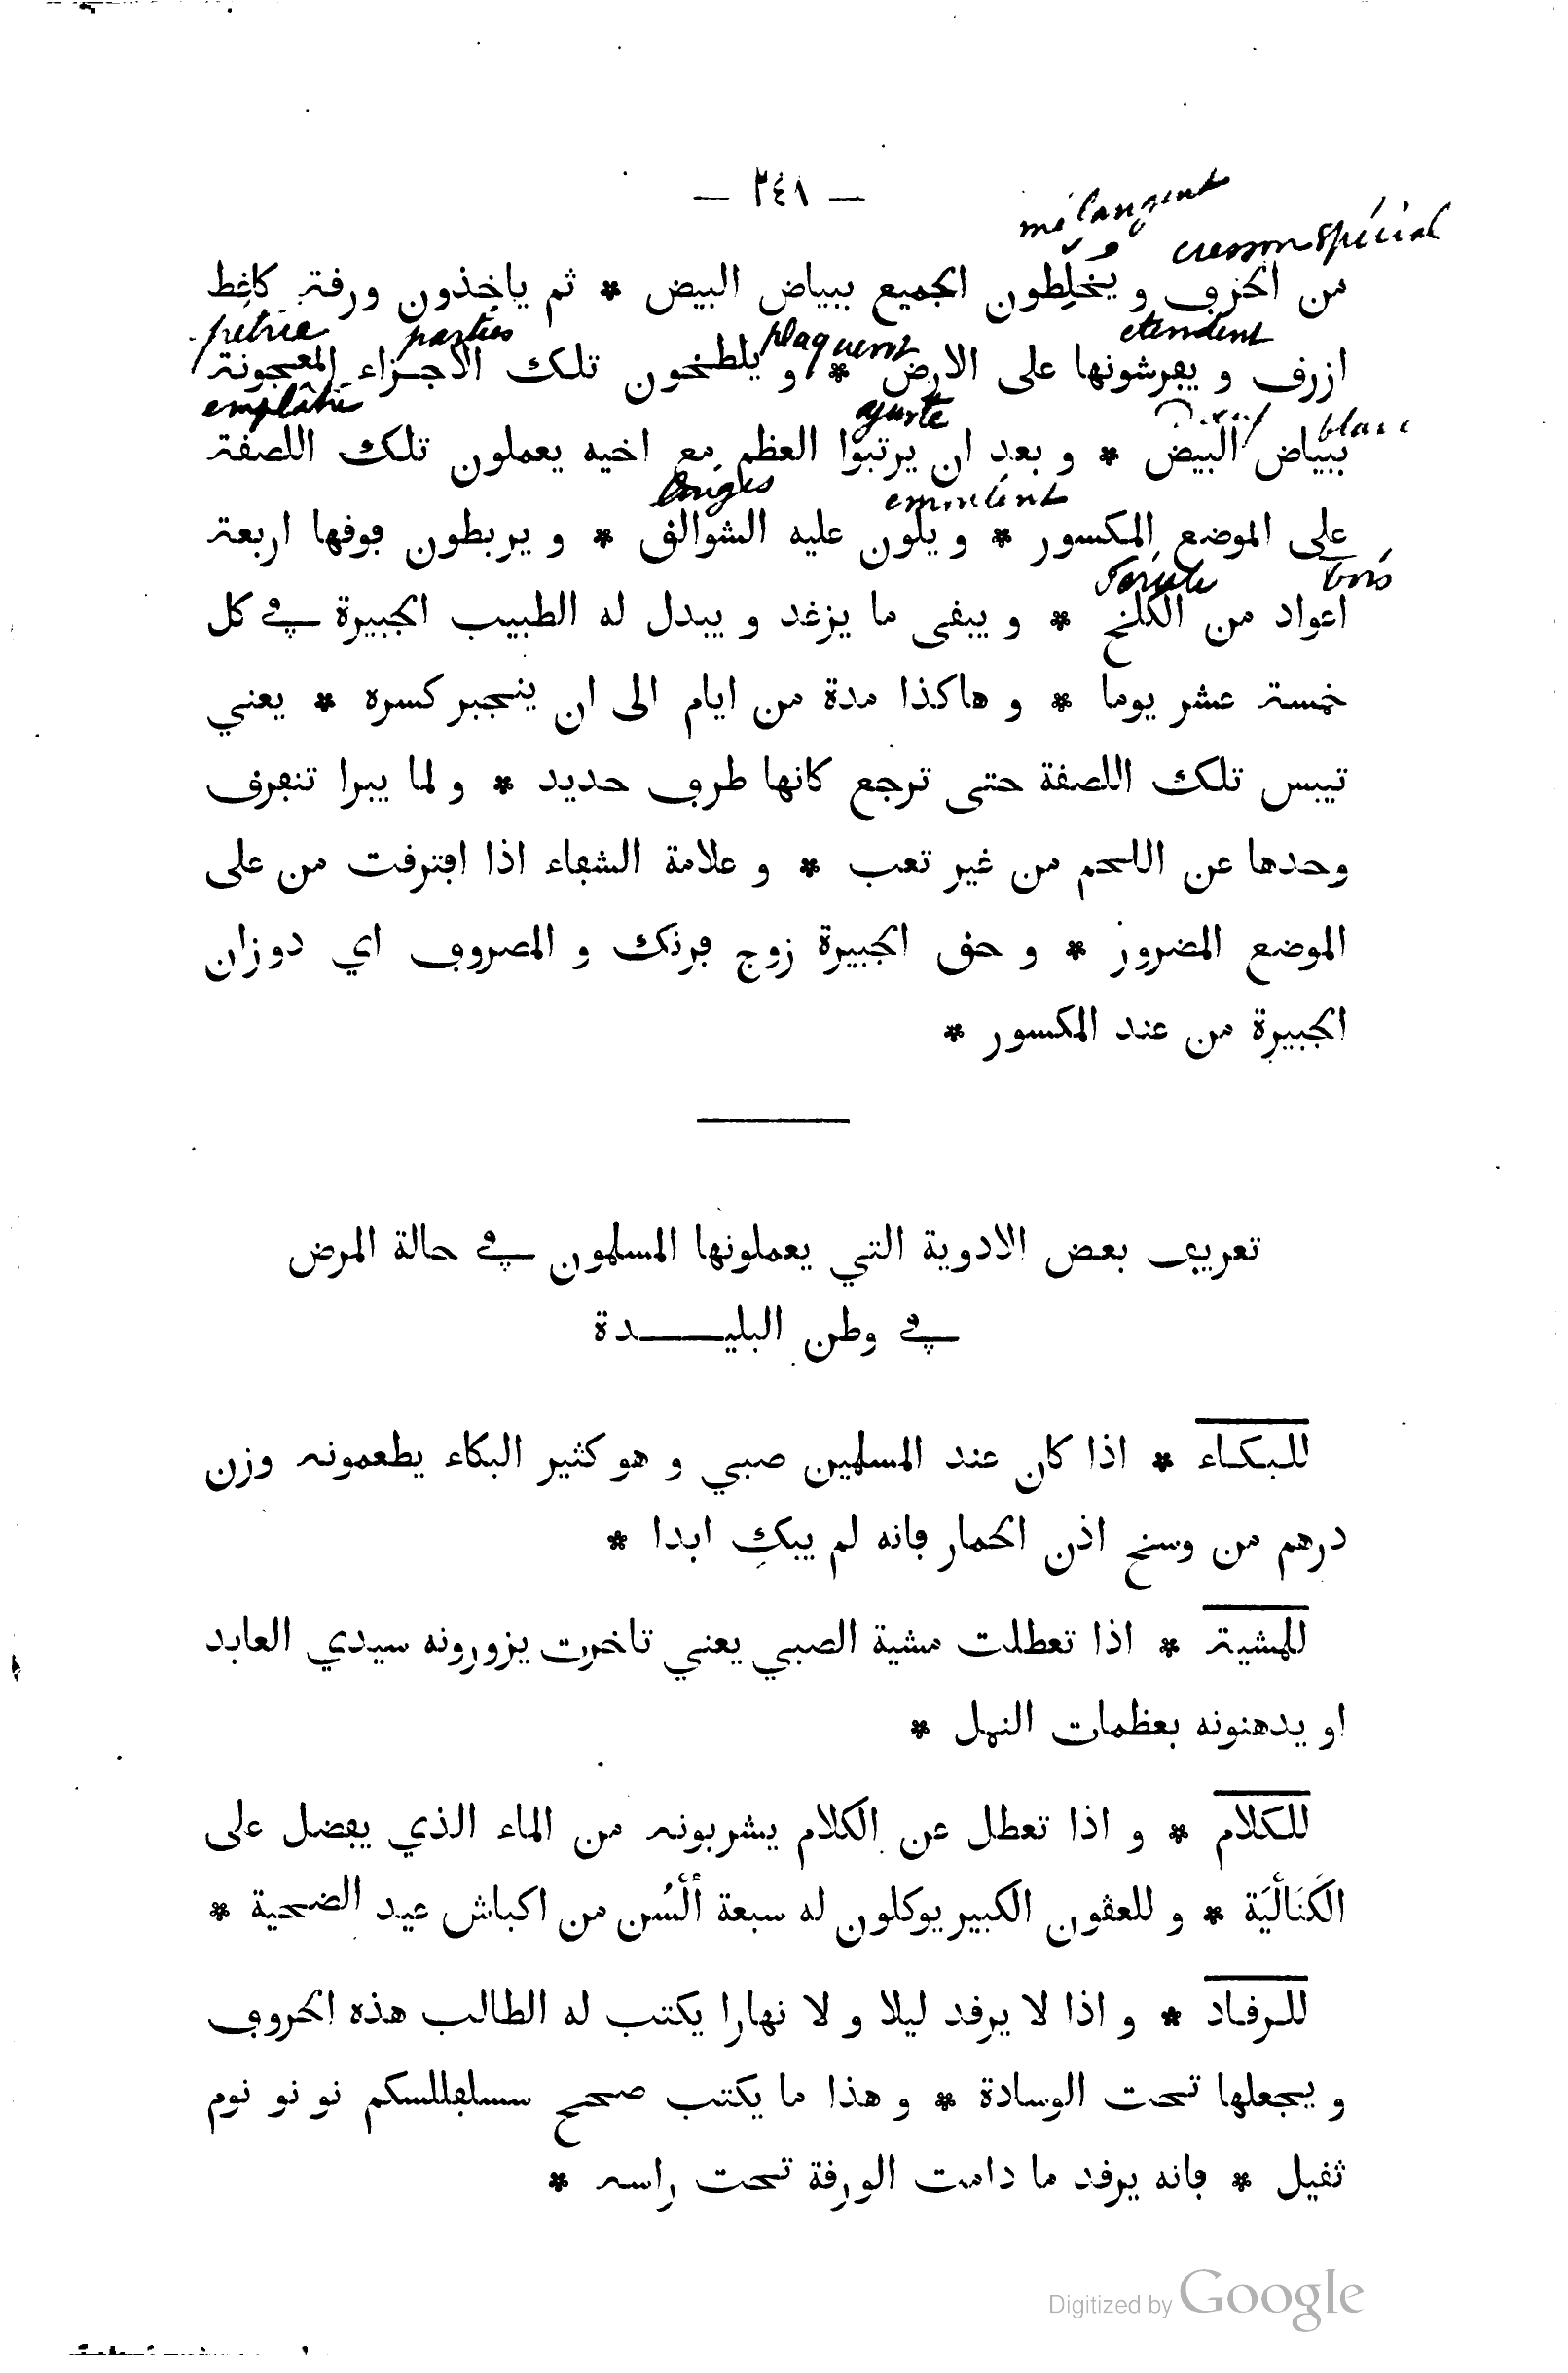 — ٢٤١ —
mélangent
cresson spécial
من الحرف و يُخَلِّطون الجميع ببياض البيض * ثم ياخذون ورقة كاغِط
pétrie parties plaquent étendent
ازرق و يفرشونها على الارض * و يلطخون تلك الاجزاء المعجونة
emplâtre ajuste blanc
ببياض البيض * و بعد ان يرتبوا العظم مع اخيه يعملون تلك اللصقة
linges
على الموضع المكسور * و يلون عليه الشوالق * و يربطون فوقها اربعة
férule bois
اعواد من الكلخ * و يبقى ما يزغد و يبدل له الطبيب الجبيرة في كل
خمسة عشر يوما * و هاكذا مدة من ايام الى ان ينجبر كسره * يعني
تيبس تلك اللصقة حتى ترجع كانها طرف حديد * و لما يبرا تنفرق
وحدها عن اللحم من غير تعب * و علامة الشفاء اذا افترقت من على
الموضع المضرور * و حق الجبيرة زوج فرنك و المصروف اي دوزان
الجبيرة من عند المكسور *
تعريف بعض الادوية التي يعملونها المسلمون في حالة المرض
في وطن البليدة
للبكاء * اذا كان عند المسلمين صبي و هو كثير البكاء يطعمونه وزن
درهم من وسخ اذن الحمار فانه لم يبكِ ابدا *
للمشية * اذا تعطلت مشية الصبي يعني تاخرت يزورونه سيدي العابد
او يدهنونه بعظمات النمل *
للكلام * و اذا تعطل عن الكلام يشربونه من الماء الذي يفضل على
الكَنَالْيَة * و للعقون الكبير يوكلون له سبعة ألْسُن من اكباش عيد الضحية *
للرقاد * و اذا لا يرقد ليلا و لا نهارا يكتب له الطالب هذه الحروف
و يجعلها تحت الوسادة * و هذا ما يكتب صحح سسلفللسكم نو نو نوم
ثقيل * فانه يرقد ما دامت الورقة تحت راسه *
Digitized by Google